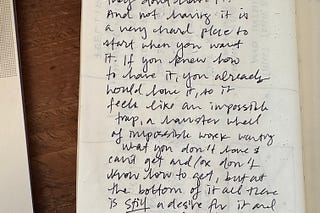 they don't have it.
And not having it is
a very hard place to
start when you want
it. If you knew how
to have it, you already
would have it, so it
feels like an impossible
trap, a hamster wheel
of impossible work wanting
what you don't have &
can't get and/or don't
know how to get, but at
the bottom of it all there
is still a desire for it and